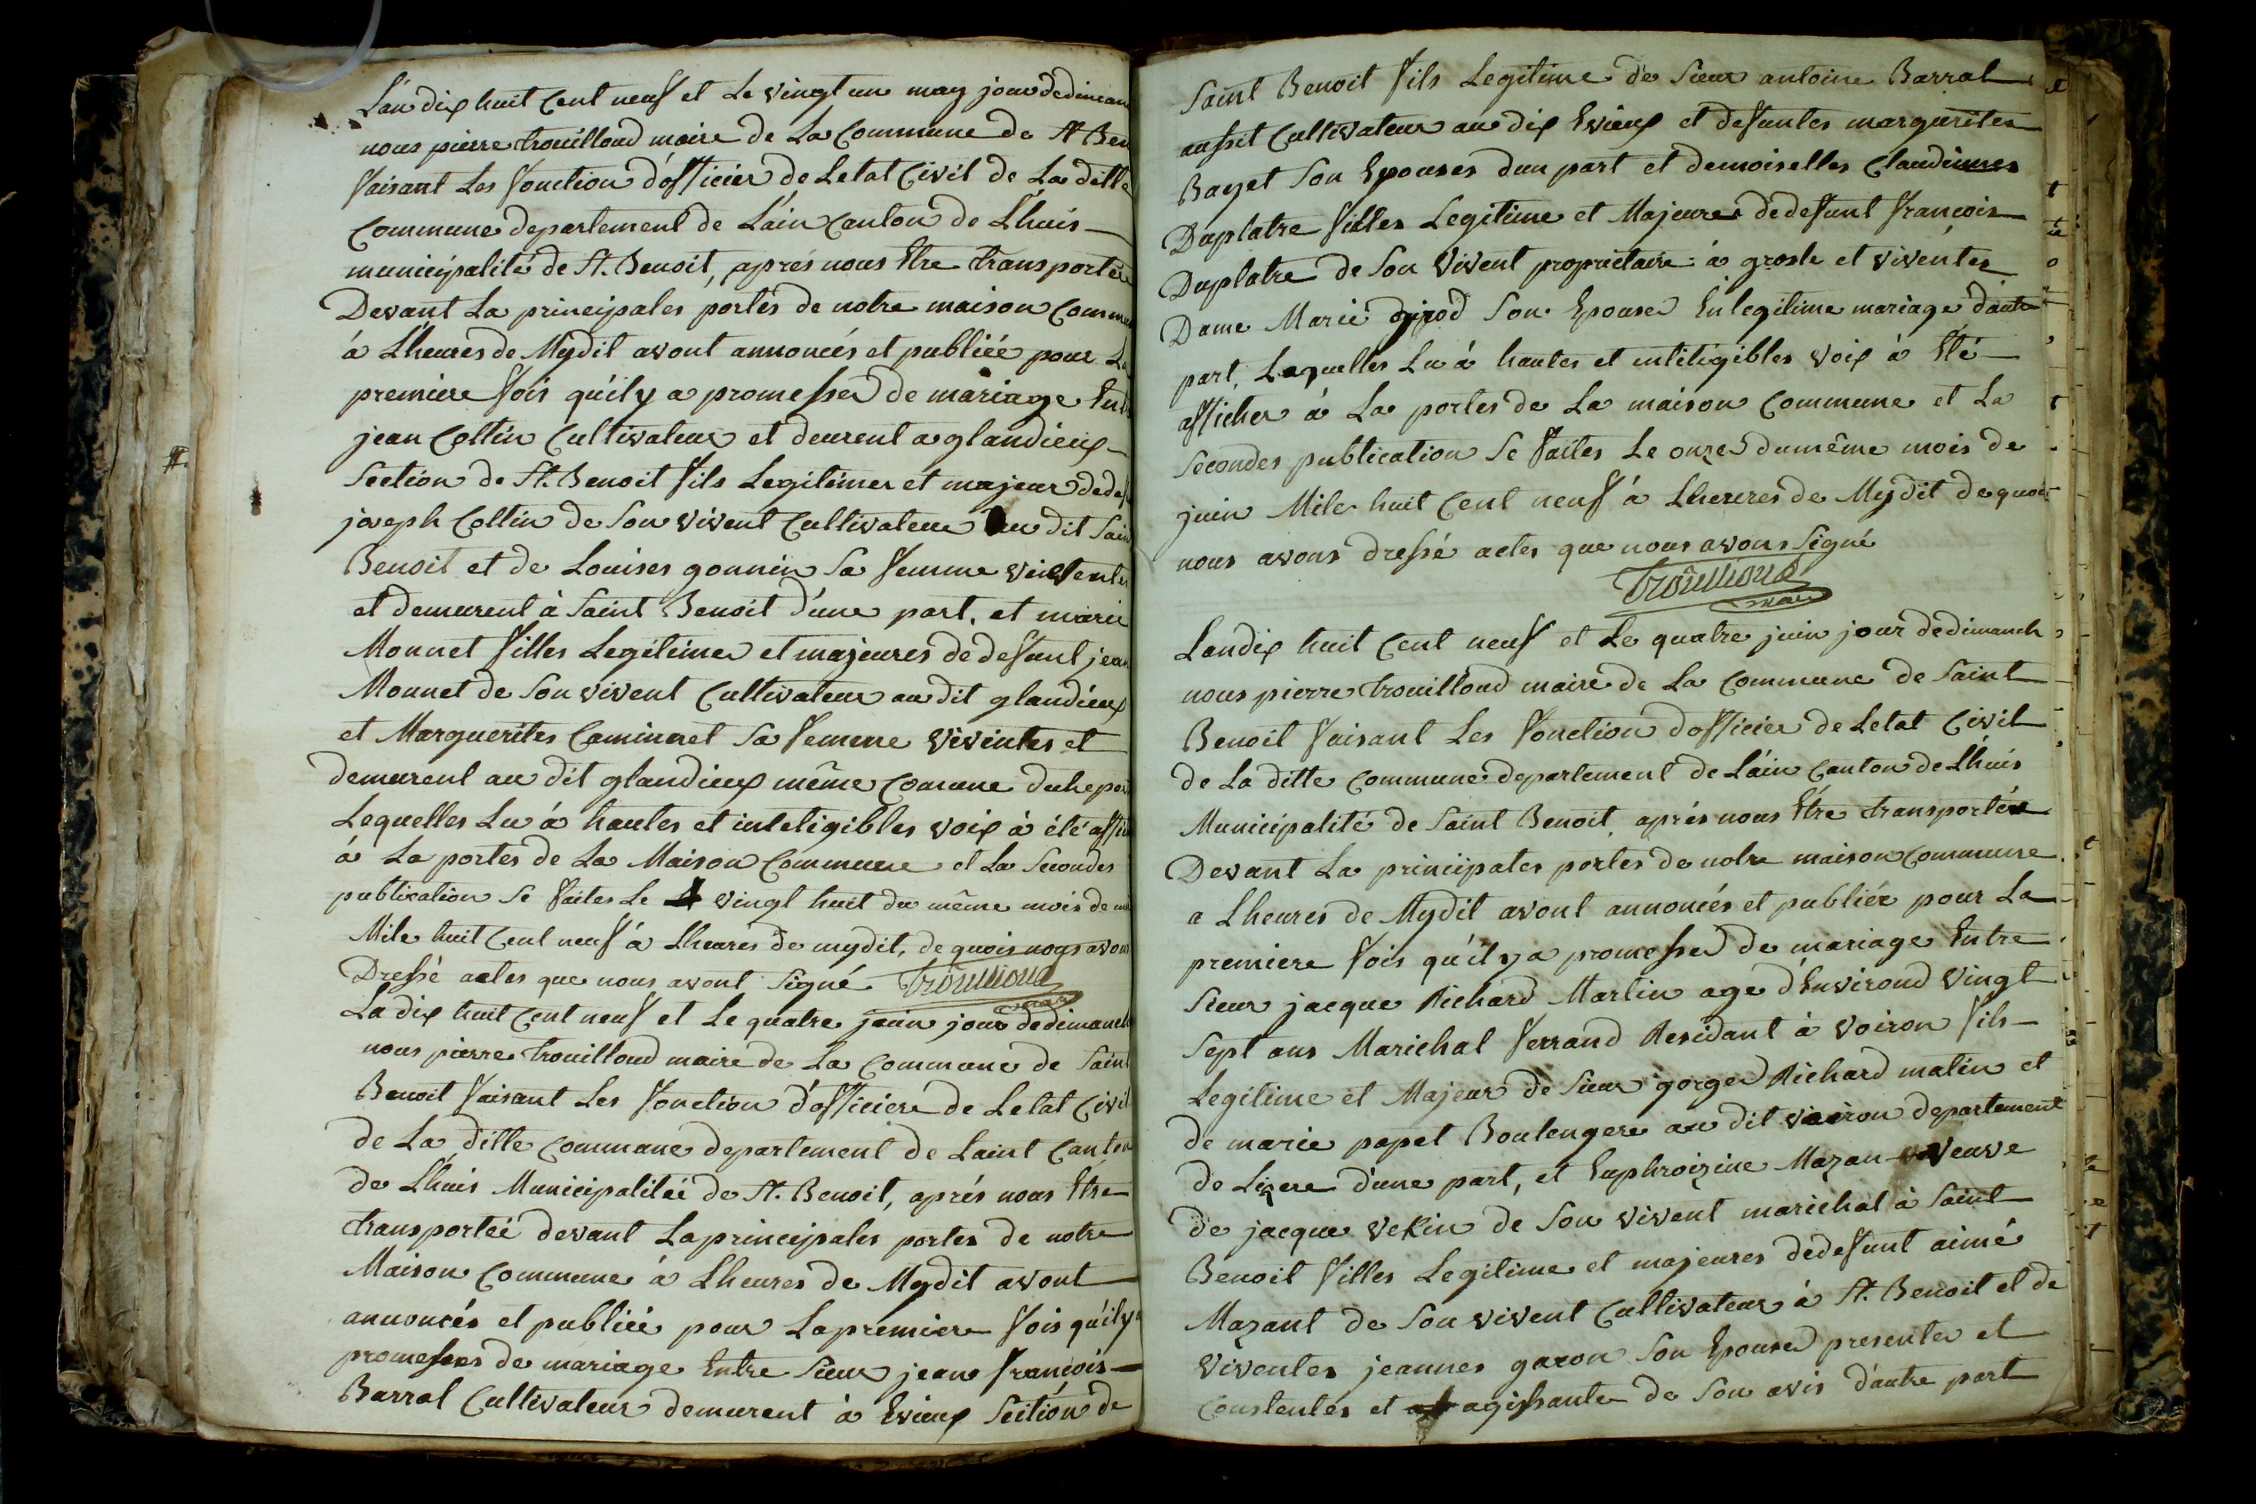 L'an dix huit Cent neuf et Le vingt un may jour dedimanc
nous pierre trouilloud maire de La Commune de St Ben
faisant Les fonction d'officier de Letat Civil de La ditte
Commune departement de L'ain Canton de Lhuis
municipalité de St. Benoit, aprés nous Etre transportée
Devant La principales portes de notre maison Commu
á Lheures de Mydit avont annoncés et publiée pour La
premiere fois qu'ily a promesse de mariage Entr
jean Cottin Cultivateur et deurent a glandieux
Section de St. Benoit fils Legitimes et majeur dedef
joseph Cottin de Son vivent Cultivateur au dit Sain
Benoit et de Louises gonnin Sa femme viventes
et demeurent à Saint Benoit d'une part, et marie
Monnet filles Legitimes et majeures de defunt jean
Monnet de Son vivent Cultivateur au dit glandieux
et Marguerites Caminet Sa femme viventes et
demeurent au dit glandieux même Comune
Lequelles Lu á hautes et inteligibles voix à été affic
á La portes de La Maison Commune et La Secondes
publication Se faites Le vingt huit du même mois de
Mile huit Cent neuf á Lheures de mydit, de quois nous avon
Dressé actes que nous avont Signé Trouilloud
maire
La dix huit Cent neuf et Le quatre juin jour dedimanch
nous pierre trouilloud maire de La Commune de Saint
Benoit faisant Les fonction d'officiere de Letat Civil
de La ditte Commune departement de Laint Canton
de Lhuis Municipalitée de St. Benoit, aprés nous Etre
transportée devant Laprincipales portes de notre
Maison Commune á Lheures de Mydit avont
annoncés et publiée pour Lapremiere fois qu'ily a
promesses de mariage Entre Sieur jean francois
Barral Cultivateur demeurent à Evieux Section de
Saint Benoit fils Legitime de Sieur antoine Barral
aussit Cultivateur au dix Evieux et defuntes marguerites
Bayet Son Epouses dun part et demoiselles Claudines
Duplatre filles Legitime et Majeures dedefunt francois
Duplatre de Son vivent propriétaire à grosle et viventes
Dame Marie girod Son Epouse En legitime mariage dautre
part, Lequelles Lu á hautes et inteligibles voix á Eté
afficher á La portes de La maison Commune et La
Secondes publication Se faites Le onze du même mois de
juin Mile huit Cent neuf á Lheures de Mydit de quois
nous avons dressé actes que nous avons Signé
Trouilloud
maire
Landix huit Cent neuf et Le quatre juin jour dedimanch
nous pierre trouilloud maire de La Commune de Saint
Benoit faisant Les fonction dofficier de Letat Civil
de La ditte Commune departement de L'ain Canton de Lhuis
Municipalité de Saint Benoit aprés nous Etre transportée
Devant La principales portes de notre maison Commune
a Lheures de Mydit avont annoncés et publiée pour La
premiere fois qu'il y a promesse de mariage Entre
Sieur jacque Richard Martin age d'Environd vingt
Sept ans Marichal ferrand Residant à voiron fils
Legitime et Majeur de Sieur gorge Richard matin et
de marie papet Boulengere au dit voiron departement
de Lizere d'une part, et Euphroizine Mazan veuve
de jacque veKin de Son vivent marichal à Saint
Benoit filles Legitime et majeures dedefunt aimé
Mazant de Son vivent Cultivateur à St. Benoit et de
viventes jeannes garon Son Epouse presente et
Constentés et agissante de Son avis d'autre part